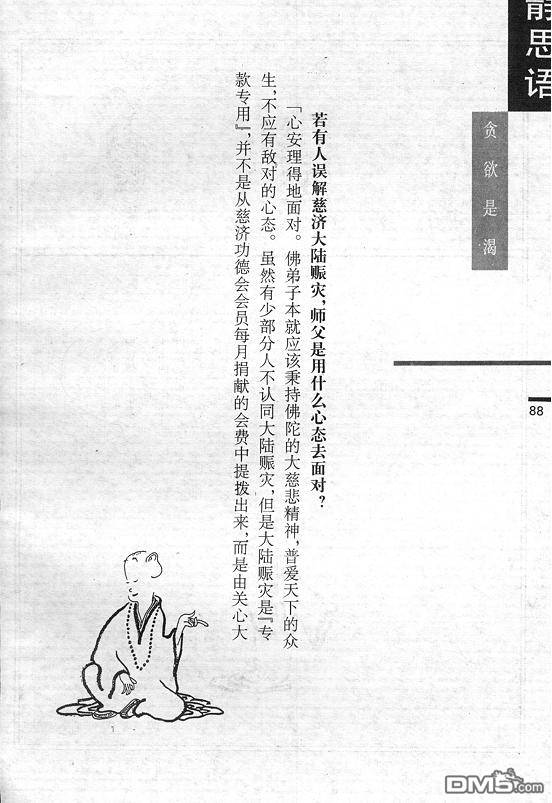 静思语
贪欲是渴
88
若有人误解慈济大陆赈灾，师父是用什么心态去面对？
「心安理得地面对。佛弟子本就应该秉持佛陀的大慈悲精神，普爱天下的众
生，不应有敌对的心态。虽然有少部分人不认同大陆赈灾，但是大陆赈灾是『专
款专用』，并不是从慈济功德会会员每月捐献的会费中提拨出来，而是由关心大
DM5.com